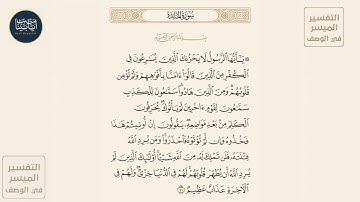 سُورَةُ المَائِدَةِ
بِسْمِ اللَّهِ الرَّحْمَٰنِ الرَّحِيمِ
۞ يَٰٓأَيُّهَا ٱلرَّسُولُ لَا يَحْزُنكَ ٱلَّذِينَ يُسَٰرِعُونَ فِى
ٱلْكُفْرِ مِنَ ٱلَّذِينَ قَالُوٓا۟ ءَامَنَّا بِأَفْوَٰهِهِمْ وَلَمْ تُؤْمِن
قُلُوبُهُمْ وَمِنَ ٱلَّذِينَ هَادُوا۟ سَمَّٰعُونَ لِلْكَذِبِ
سَمَّٰعُونَ لِقَوْمٍ ءَاخَرِينَ لَمْ يَأْتُوكَ يُحَرِّفُونَ
ٱلْكَلِمَ مِنۢ بَعْدِ مَوَاضِعِهِۦ يَقُولُونَ إِنْ أُوتِيتُمْ هَٰذَا
فَخُذُوهُ وَإِن لَّمْ تُؤْتَوْهُ فَٱحْذَرُوا۟ وَمَن يُرِدِ ٱللَّهُ
فِتْنَتَهُۥ فَلَن تَمْلِكَ لَهُۥ مِنَ ٱللَّهِ شَيْـًٔا أُو۟لَٰٓئِكَ ٱلَّذِينَ لَمْ
يُرِدِ ٱللَّهُ أَن يُطَهِّرَ قُلُوبَهُمْ لَهُمْ فِى ٱلدُّنْيَا خِزْىٌ وَلَهُمْ فِى
ٱلْـَٔاخِرَةِ عَذَابٌ عَظِيمٌ
التفسير
الميسر
في الوصف
التفسير
الميسر
في الوصف